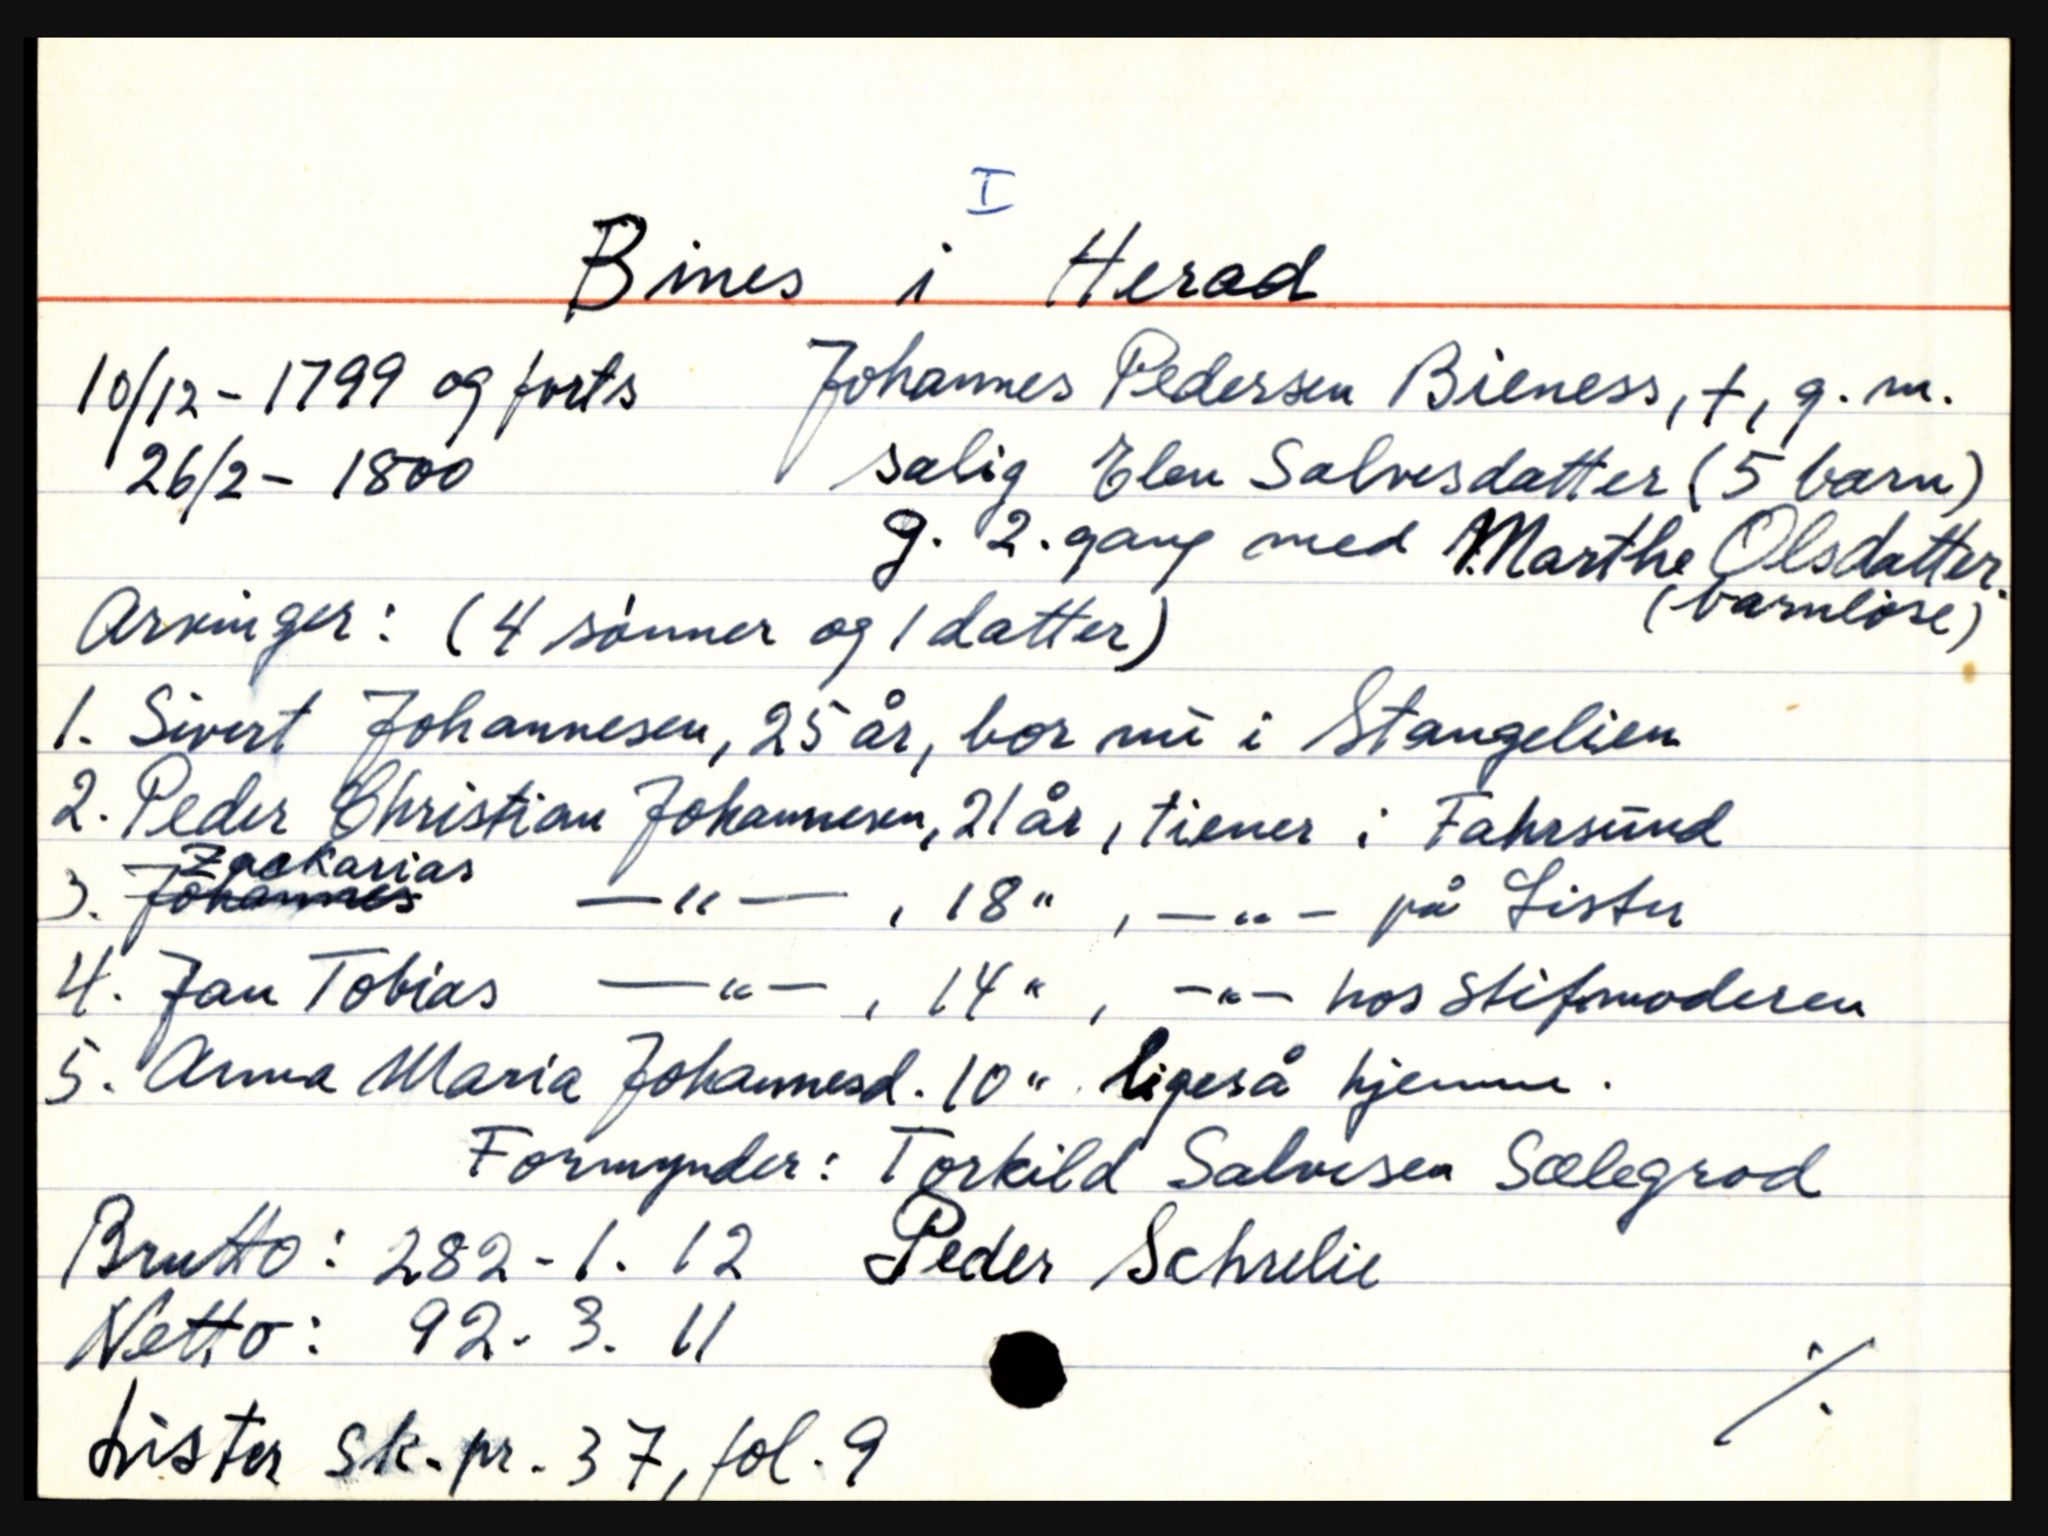 I
Bines i Herad
10/12 - 1799 og forts Johannes Pedersen Bieness, †, g. m.
26/2 - 1800 salig Elen Salvesdatter (5 barn)
g. 2. gang med Marthe Olsdatter.
(barnløse)
Arvinger: (4 sønner og 1 datter)
1. Sivert Johannesen, 25 år, bor nu i Stangelien
2. Peder Christian Johannesen, 21 år, tiener i Fahrsund
Zackarias
3. Johannes —"— , 18 " , —"— på Lister
4. Jan Tobias —"— , 14 " , —"— hos stifmoderen
5. Anna Maria Johannesd. 10 " ligeså hjemme.
Formynder: Torkild Salvesen Sælegrod
Brutto: 282 - 1. 12 Peder Schrelie
Netto: 92. 3. 11
./.
Lister sk. pr. 37, fol. 9